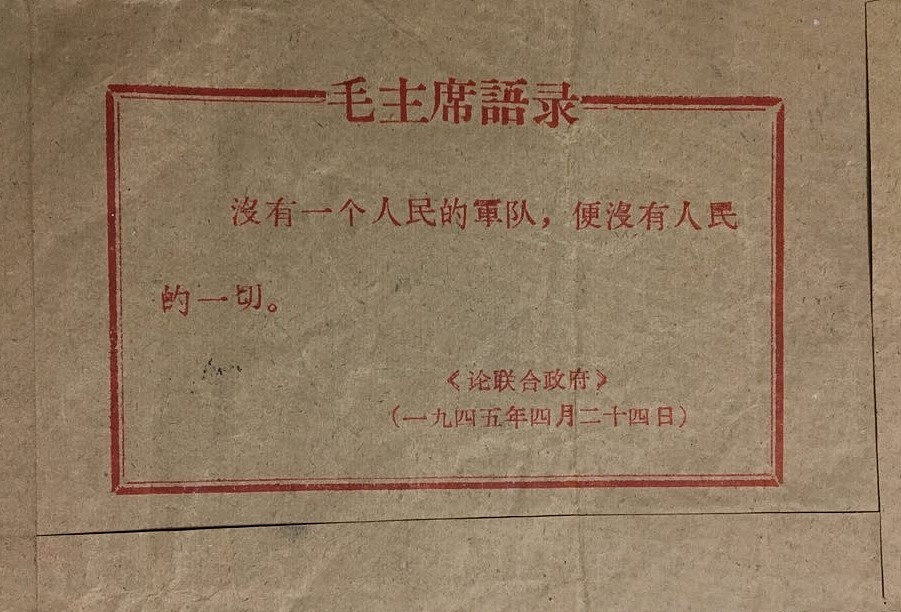 毛主席語录
沒有一个人民的軍队，便沒有人民
的一切。
《论联合政府》
（一九四五年四月二十四日）